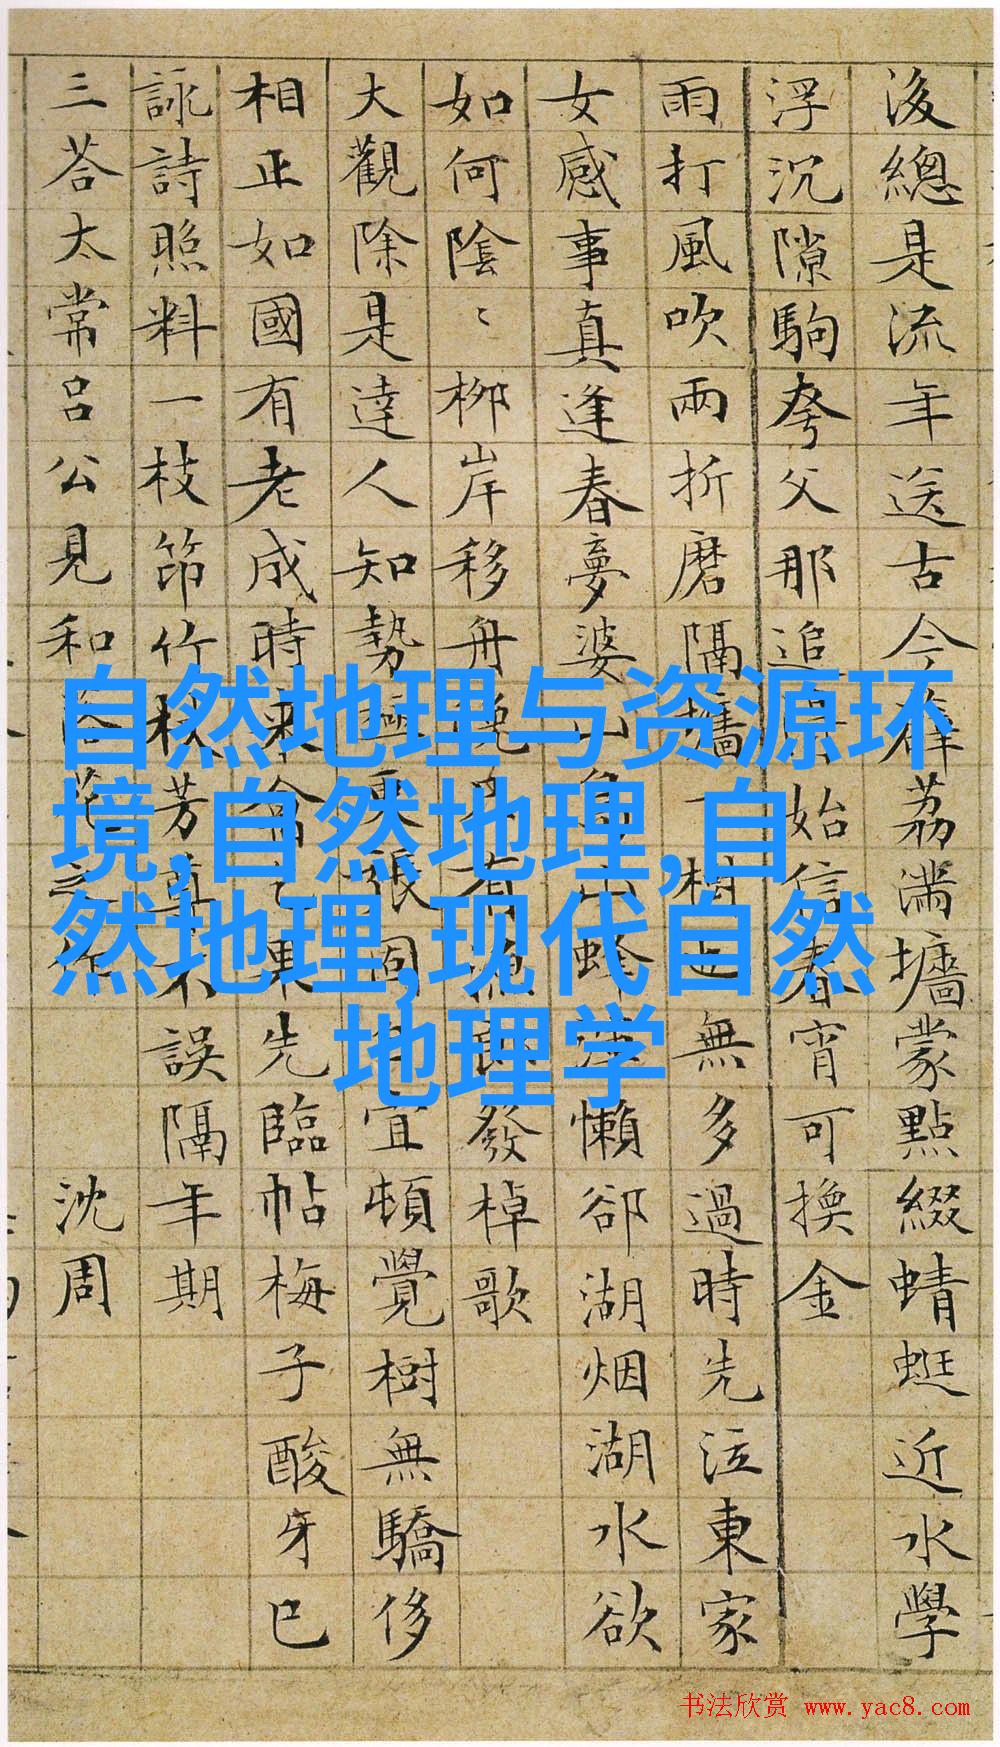 後總是流年送古今薜荔滿墻蒙點綴蜻蜓近水學
浮沉隙駒夸父那追始信春宵可換金
雨打風吹兩折磨隔墻一樹也無多過時先泣東家
女感事真逢春夢婆山鳥山蜂渾懶卻湖烟湖水欲
如何陰〻柳岸移舟晚又有漁郎發棹歌
大觀除是達人知勢極更張固自宜頓覺樹無驕侈
相正如國有老成時來東先臨帖梅子酸牙已
詠詩照料一枝笻竹杖芳尊不誤隔年期
三荅太常呂公見和落花之作 沈周
自然地理与资源环
境,自然地理,自
然地理,现代自然
地理学
书法欣赏 www.yac8.com